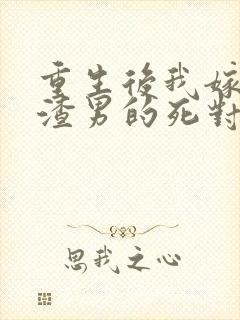 重生後我嫁
渣男的死對
思我之心